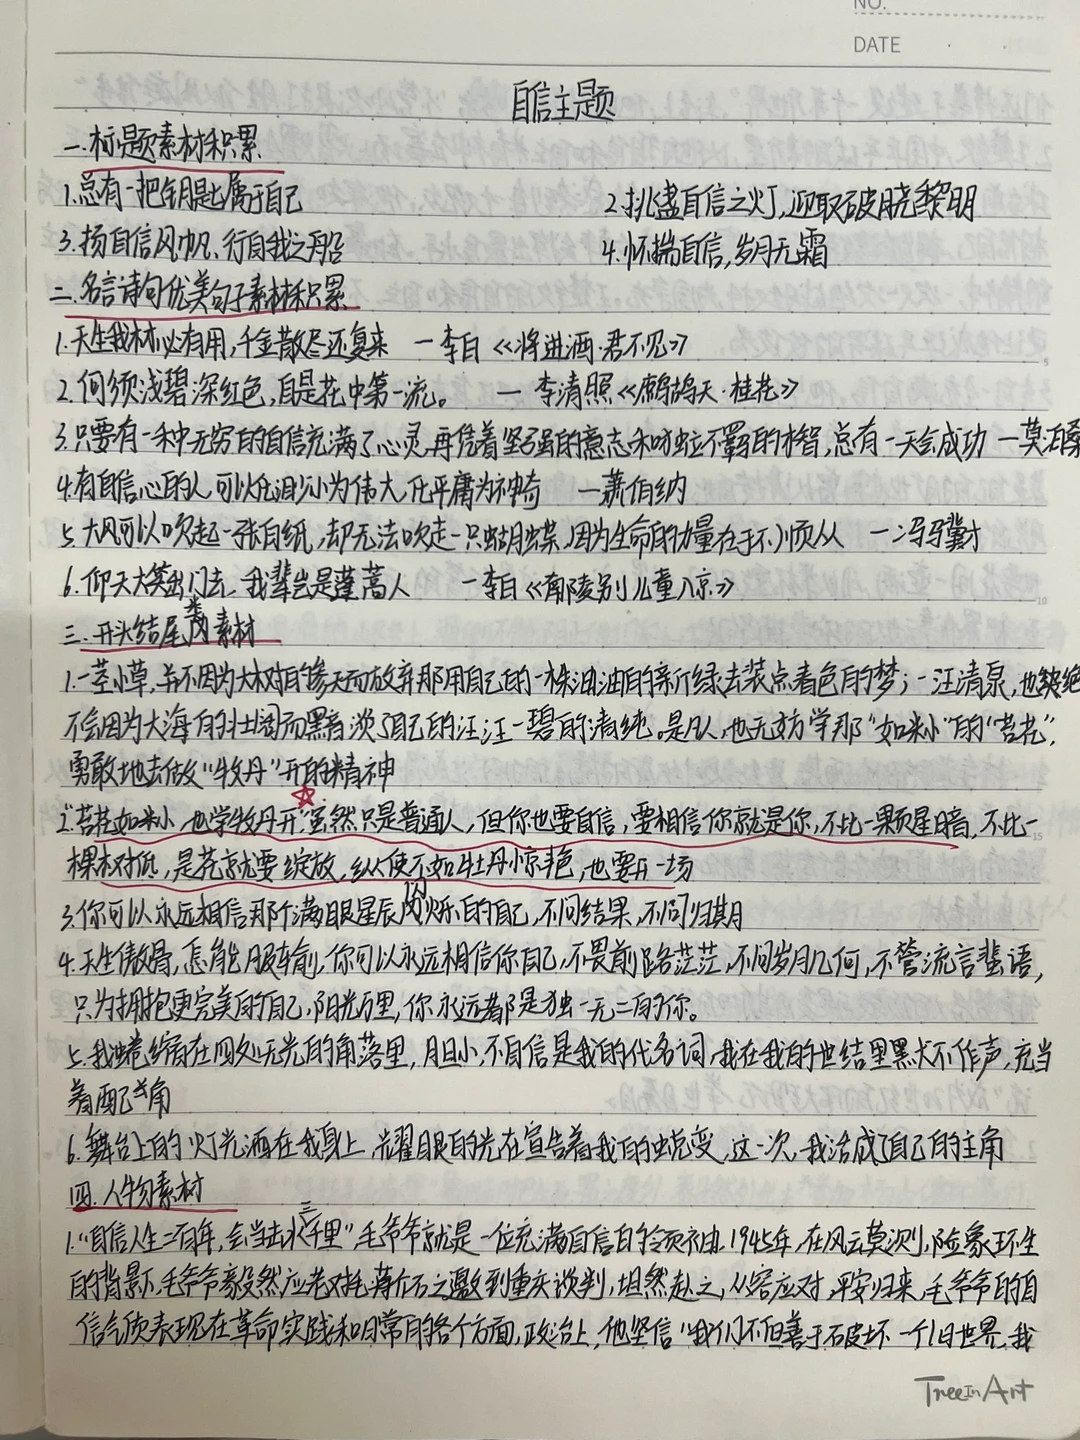 NO.
DATE
自信主题
一.标题素材积累
1.总有一把钥匙属于自己 2.挑盏自信之灯,迎取破晓黎明
3.扬自信风帆,行自我之船 4.怀揣自信,岁月无霜
二.名言诗句优美句子素材积累
1.天生我材必有用,千金散尽还复来 —李白《将进酒·君不见》
2.何须浅碧深红色,自是花中第一流。 —李清照《鹧鸪天·桂花》
3.只要有一种无穷的自信充满了心灵,再凭着坚强的意志和独立不羁的才智,总有一天会成功 —莫泊桑
4.有自信心的人可以化渺小为伟大,化平庸为神奇 —萧伯纳
5.大风可以吹起一张白纸,却无法吹走一只蝴蝶,因为生命的力量在于不顺从 —冯骥才
6.仰天大笑出门去,我辈岂是蓬蒿人 —李白《南陵别儿童入京》
三.开头结尾类素材
1.一茎小草,并不因为大树的参天而放弃那用自己的一株油油的新绿去装点春色的梦;一汪清泉,也绝
不会因为大海的壮阔而黯淡了自己的汪汪一碧的清纯。是凡人,也无妨学那“如米小”的“苔花”,
勇敢地去做“牡丹”开的精神
2.“苔花如米小,也学牡丹开”虽然只是普通人,但你也要自信,要相信你就是你,不比一颗星暗,不比一
棵树低,是花就要绽放,纵使不如牡丹惊艳,也要开一场
3.你可以永远相信那个满眼星辰闪烁的自己,不问结果,不问归期
4.天生傲骨,怎能服输,你可以永远相信你自己,不畏前路茫茫,不问岁月几何,不管流言蜚语,
只为拥抱更完美的自己,阳光万里,你永远都是独一无二的你。
5.我蜷缩在四处无光的角落里,胆小,不自信是我的代名词,我在我的世界里默不作声,充当
着配角
6.舞台上的灯光洒在我身上,耀眼的光在宣告着我的蜕变,这一次,我活成了自己的主角
四.人物素材
1.“自信人生二百年,会当击水三千里”毛爷爷就是一位充满自信的领袖.1945年,在风云莫测,险象环生
的背景下,毛爷爷毅然应老对手蒋介石之邀到重庆谈判,坦然赴之,从容应对,平安归来,毛爷爷的自
信气质表现在革命实践和日常的各个方面,政治上,他坚信“我们不但善于破坏一个旧世界,我
Tree In Art